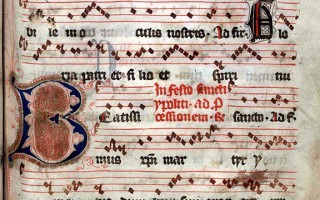 bi le in o culis nostris. Ad fir. G lo
ria patri et fi lio et spiri tui
In festo sancti
ypoliti. ad P
B eatissi cessionem. sancto. Ad F.
mus xpi mar tyr y